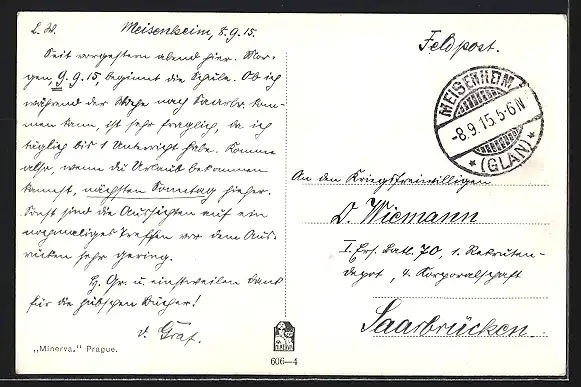 L. W. Meisenheim, 8.9.15.
Seit vorgestern abend hier. Mor-
gen, 9.9.15, beginnt die Schule. Ob ich
während der Woche nach Saarbr. kom-
men kann, ist sehr fraglich, da ich
täglich bis 1 Unterricht habe. Komme
also, wenn du Urlaub bekommen
kannst, nächsten Sonntag hieher.
Sonst sind die Aussichten auf ein
nochmaliges Treffen vor dem Aus-
rücken sehr gering.
H. Gr. u. einstweilen Dank
für die hübschen Bücher!
d. Graf.
„Minerva.“ Prague.
Feldpost.
MEISENHEIM
-8.9.15.5-6N
* (GLAN) *
An den Kriegsfreiwilligen
D. Wiemann
I. Ers. Batl. 70, 1. Rekruten-
depot, 4. Korporalschaft
Saarbrücken.
606—4